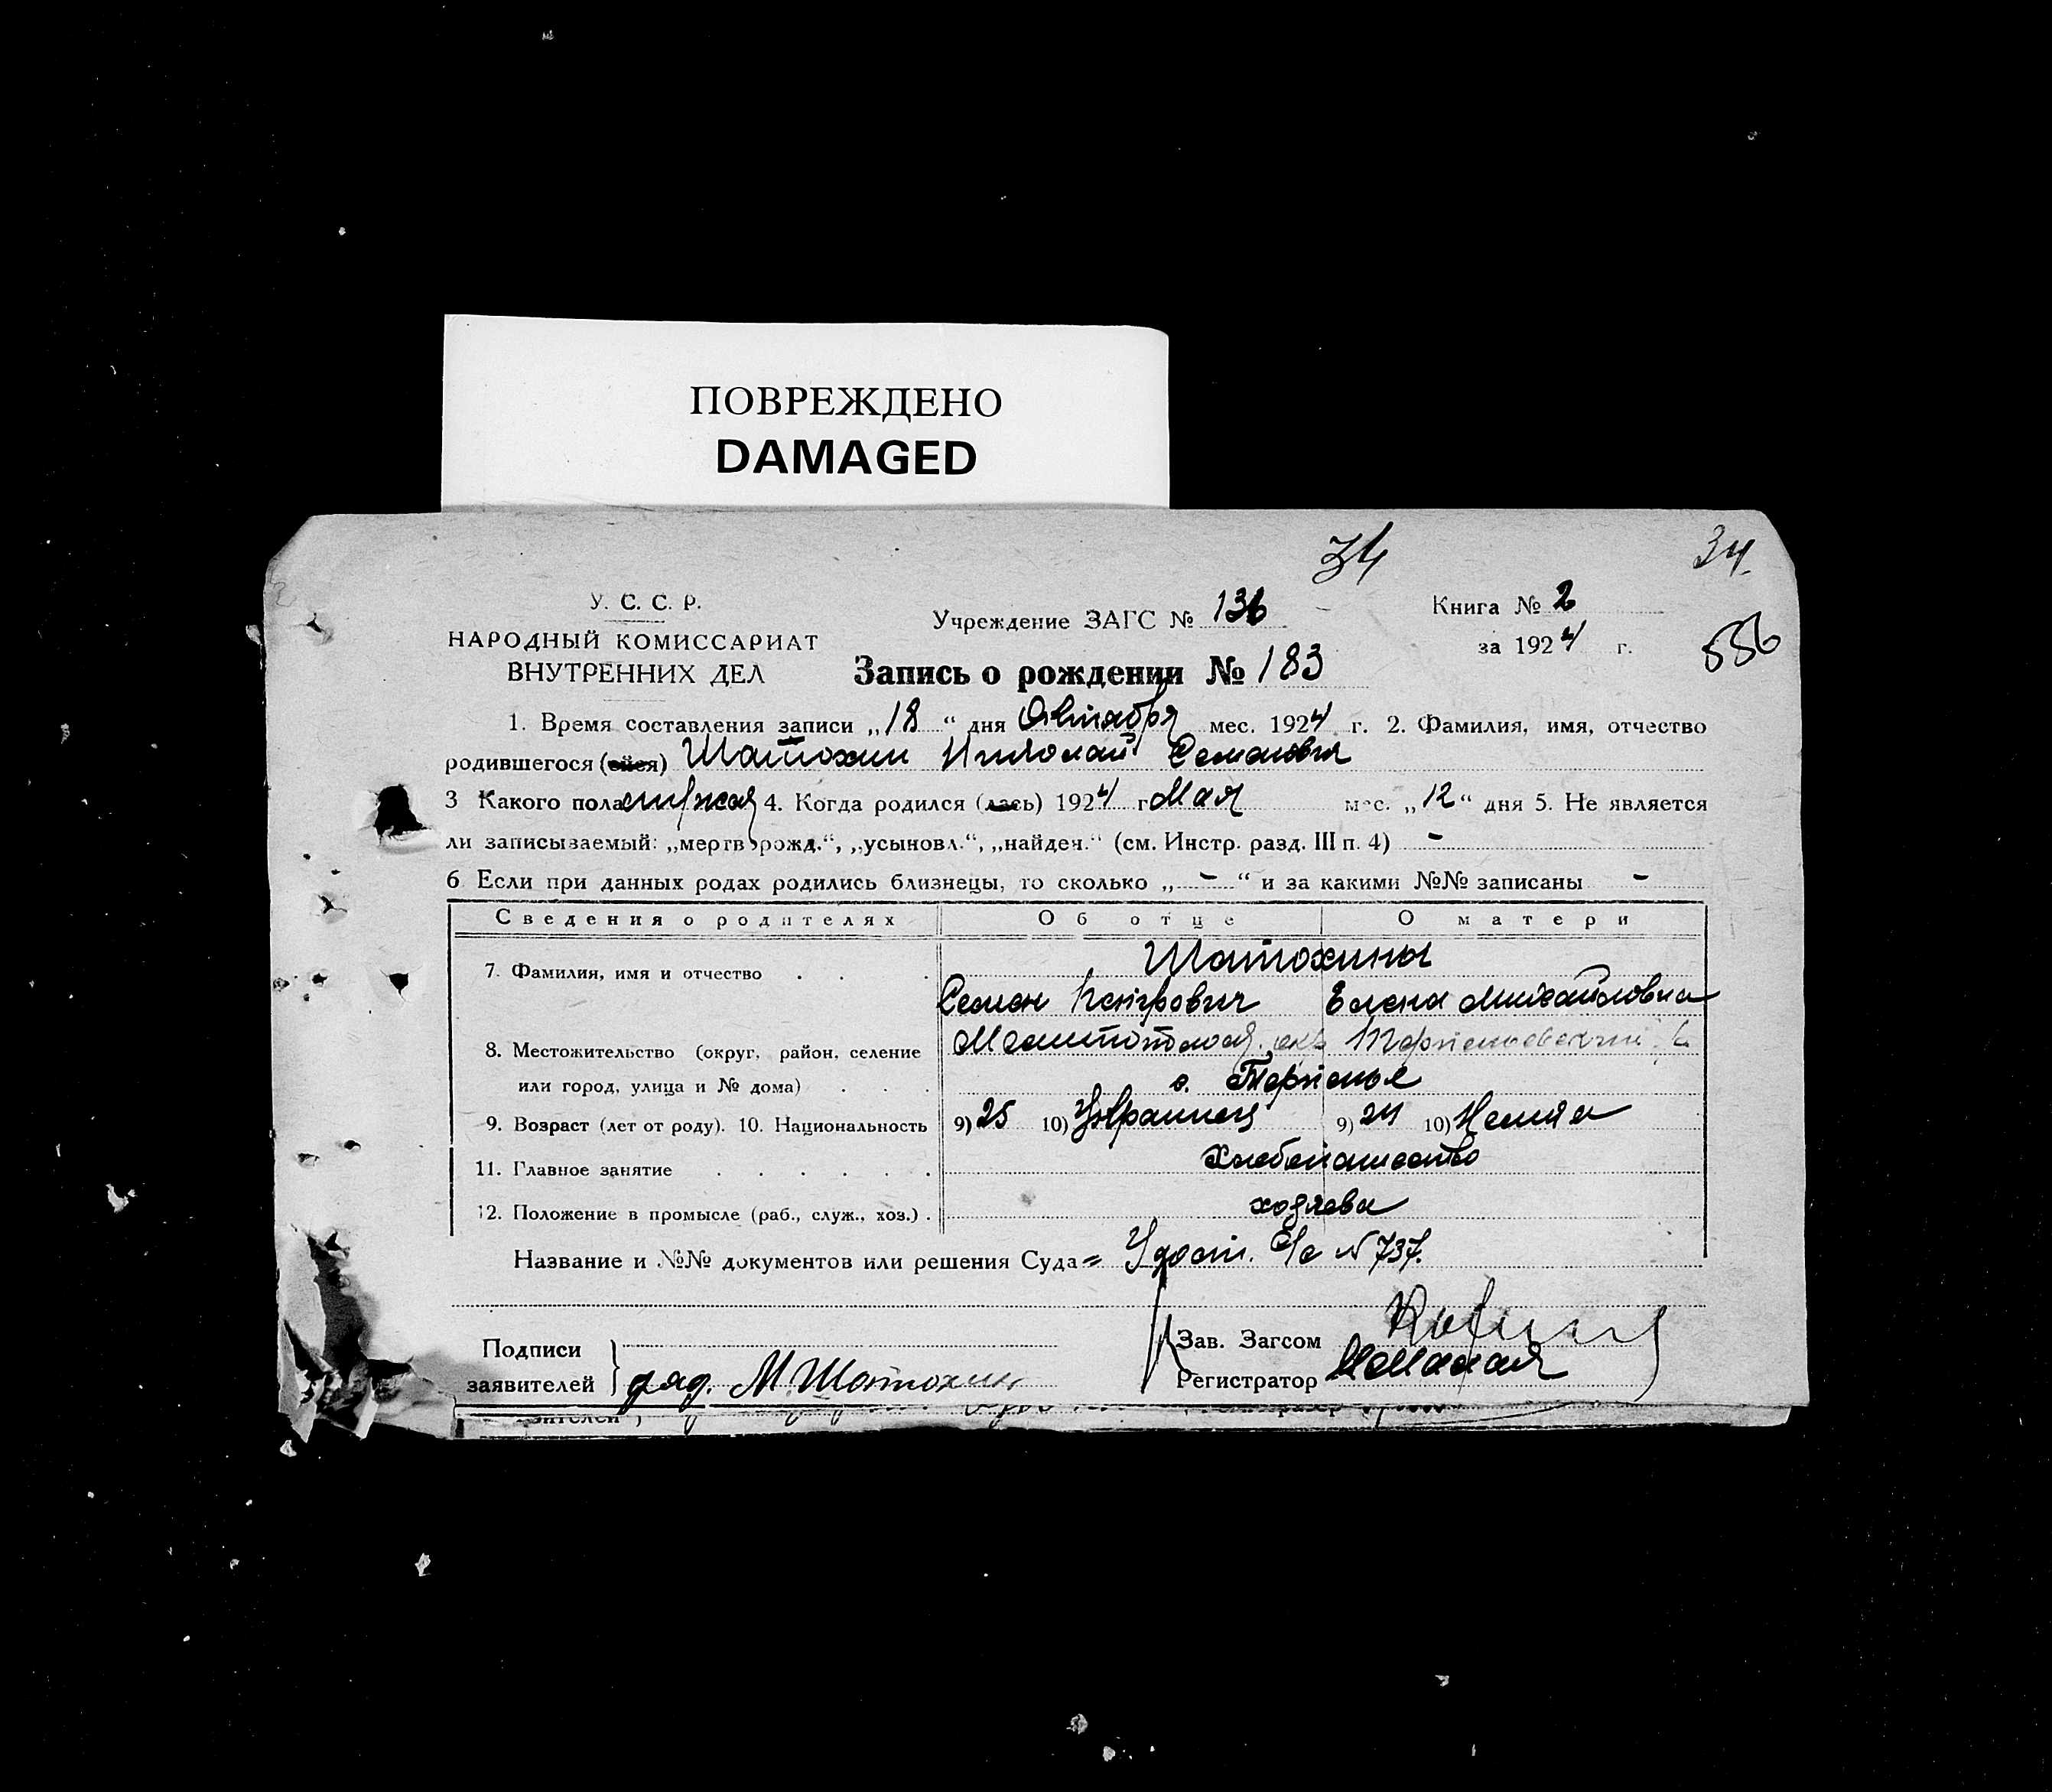 ПОВРЕЖДЕНО
DAMAGED
34
34.
У. С. С. Р.
НАРОДНЫЙ КОМИССАРИАТ
ВНУТРЕННИХ ДЕЛ
Учреждение ЗАГС № 136
Книга № 2
за 1924 г.
556
Запись о рождении № 183
1. Время составления записи „18“ дня Октября мес. 1924 г. 2. Фамилия, имя, отчество
родившегося (ейся) Шатохин Николай Семенович
3 Какого пола мужск 4. Когда родился (лась) 1924 г Мая мес. „12“ дня 5. Не является
ли записываемый: „мертворожд.“, „усыновл.“, „найден.“ (см. Инстр. разд. III п. 4) -
6 Если при данных родах родились близнецы, то сколько „-“ и за какими №№ записаны -
Сведения о родителях Об отце О матери
7. Фамилия, имя и отчество . . . Шатохины
Семен Елена Михайловна
8. Местожительство (округ, район, селение
или город, улица и № дома) . . . с. Терпенье
9. Возраст (лет от роду). 10. Национальность 9) 25 10) Украинец 9) 24 10) Немка
11. Главное занятие . . . . . . Хлебопашество
12. Положение в промысле (раб., служ., хоз.) . хозяева
Название и №№ документов или решения Суда = Удост. С/с № 737.
Подписи
заявителей } дяд. М. Шатохин
Зав. Загсом
Регистратор